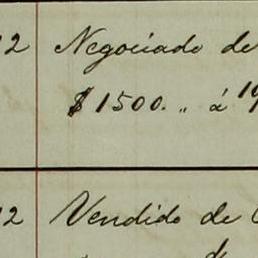 12 Negociado de
$ 1500. „ á 19
12 Vendido de
d